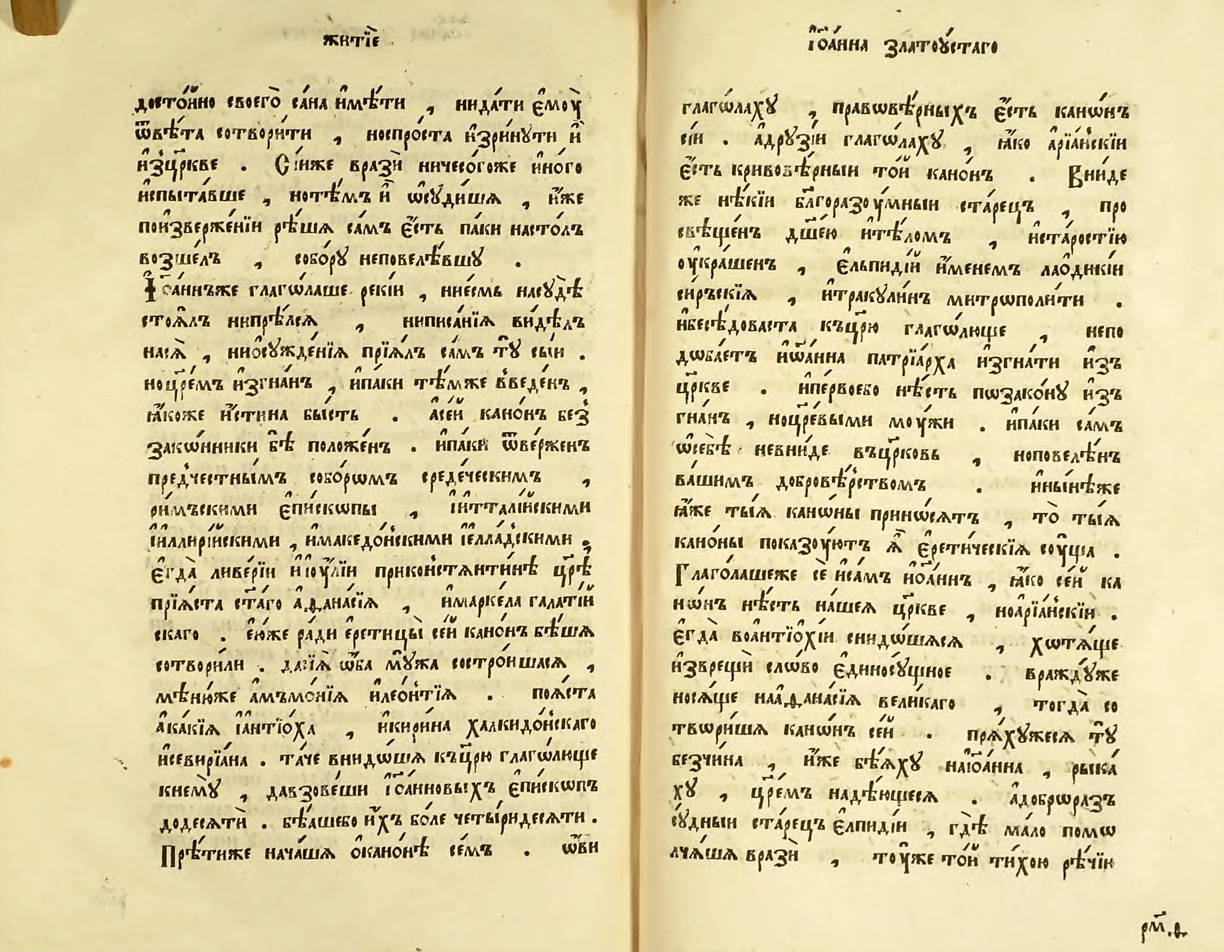 житїѐ
досто́йно своего̀ са́на имѣ́ти , нида́ти є҆моу̀
ѿвѣ́та сотвори́ти , носпро́ста и҆зри́нꙋти и҆̀
и҆зцр҃кве . Сі́иже вразѝ ничесо́гоже и҆но́го
и҆спыта́вше , нотѣ́мъ и҆̀ ѡ҆сꙋди́шѧ , и҆́же
поизверже́нїи рѣ́шѧ са́мъ є҆́сть па́ки насто́лъ
возше́лъ , собо́рꙋ неповелѣ́вшꙋ .
І҆ѡа́ннъже глаго́лаше рекі́и , ниє́смь насꙋдѣ̀
стоѧ́лъ нипрѣ́лсѧ , ниписа́нїѧ ви́дѣлъ
насѧ̀ , ниѡ҆сꙋжде́нїѧ прїѧ́лъ са́мъ тꙋ̀ сы́и .
ноцр҃е́мъ и҆згна́нъ , и҆па́ки тѣ́мже введе́нъ ,
ꙗ҆́коже и҆́стина бы́сть . а҆се́й кано́нъ без̾
зако́нники бѣ̀ положе́нъ . и҆па́ки ѿве́рженъ
предче́стнымъ собо́рѡмъ среде́ческимъ ,
ри́мъскими є҆пи́скѡпы , і҆итталі́йскими
і҆иллирі́йскими , и҆македо́нскими і҆елла́дскими ,
є҆гда̀ ливе́рїи и҆і҆ꙋ́лїи приконстѧнти́нѣ цр҃ѣ̀
прїѧ́ста ст҃а́го а҆ѳана́сїѧ , и҆марке́ла галаті́й
скаго . є҆ю́же ра́ди є҆ретицы̀ се́й кано́нъ бѣ́шѧ
сотвори́ли . да́сїѧ ѻ҆́ба мꙋ́жа состро́ишасѧ ,
мѣню́же а҆мъмо́нїѧ и҆лео́нтїѧ . поѧ́ста
а҆ка́кїѧ і҆антїо́ха , и҆кири́на халкидо́нскаго
и҆севирїа́на . та́че внидо́шѧ къцр҃ю̀ глаго́люще
кнемꙋ̀ , давзове́ши і҆ѡа́нновыхъ є҆пи́скѡпъ
доде́сѧти . бѣ́ашебо и҆́хъ бо́ле четы́ридесѧти .
Прѣ́тиже нача́шѧ ѡ҆кано́нѣ се́мъ . ѻ҆́ви
і҆ѡа́нна златоꙋ́стаго
глаго́лахꙋ , правовѣ́рныхъ є҆́сть кано́нъ
сі́и . а҆дрꙋзі́и глаго́лахꙋ , ꙗ҆́ко а҆рїа́нскїи
є҆́сть кривовѣ́рныи то́й кано́нъ . Вни́де
же нѣ́кїи бл҃горазоу́мныи ста́рецъ , про
свѣще́нъ дш҃е́ю итѣ́ломъ , и҆ста́ростїю
оу҆кра́шенъ , є҆льпиді́й и҆́менемъ лаѻдикі́и
си́ръскїѧ , и҆тракꙋли́нъ митрополи́ти .
и҆бесѣ́довастa къцр҃ю̀ глаго́люще , непо
доба́етъ и҆ѡа́нна патрїа́рха изгна́ти изъ
цр҃кве . и҆пе́рвоебо нѣ́сть позако́нꙋ из̾
гна́нъ , ноцр҃е́выми моу́жи . и҆па́ки са́мъ
ѡ҆себѣ̀ невни́де въцр҃ковь , ноповелѣ́нъ
ва́шимъ добровѣ́рствомъ . и҆ны́нѣже
ꙗ҆́же ты́ѧ кано́ны прино́сѧтъ , то̀ ты́ѧ
кано́ны показоу́ютъ ꙗ҆̀ є҆рети́ческїѧ соу́ща .
Глаго́лашеже сѐ и҆са́мъ и҆ѡа́ннъ , ꙗ҆́ко се́й ка
но́нъ нѣ́сть на́шеѧ цр҃кве , ноа҆рїа́нскїи .
є҆гда̀ воантїо́хїи снидо́шѧсѧ , хотѧ́ще
и҆зврещѝ сло́во є҆диносꙋ́щное . враждꙋ́же
носѧ́ще наа҆ѳана́сїѧ вели́каго , тогда̀ со
твори́шѧ кано́нъ се́й . прѧ́хꙋжесѧ тꙋ̀
безчи́нна , и҆́же бѣ́ѧхꙋ наі҆ѡа́нна , рыка́
хꙋ , цр҃е́мъ надѣ́ющесѧ . а҆доброраз̾
сꙋ́дныи ста́рецъ є҆лпиді́и , гдѣ̀ ма́ло помо
лча́шѧ вразѝ , тоу҆́же то́й ти́хою рѣ́чїю
рм҃ .ѳ.